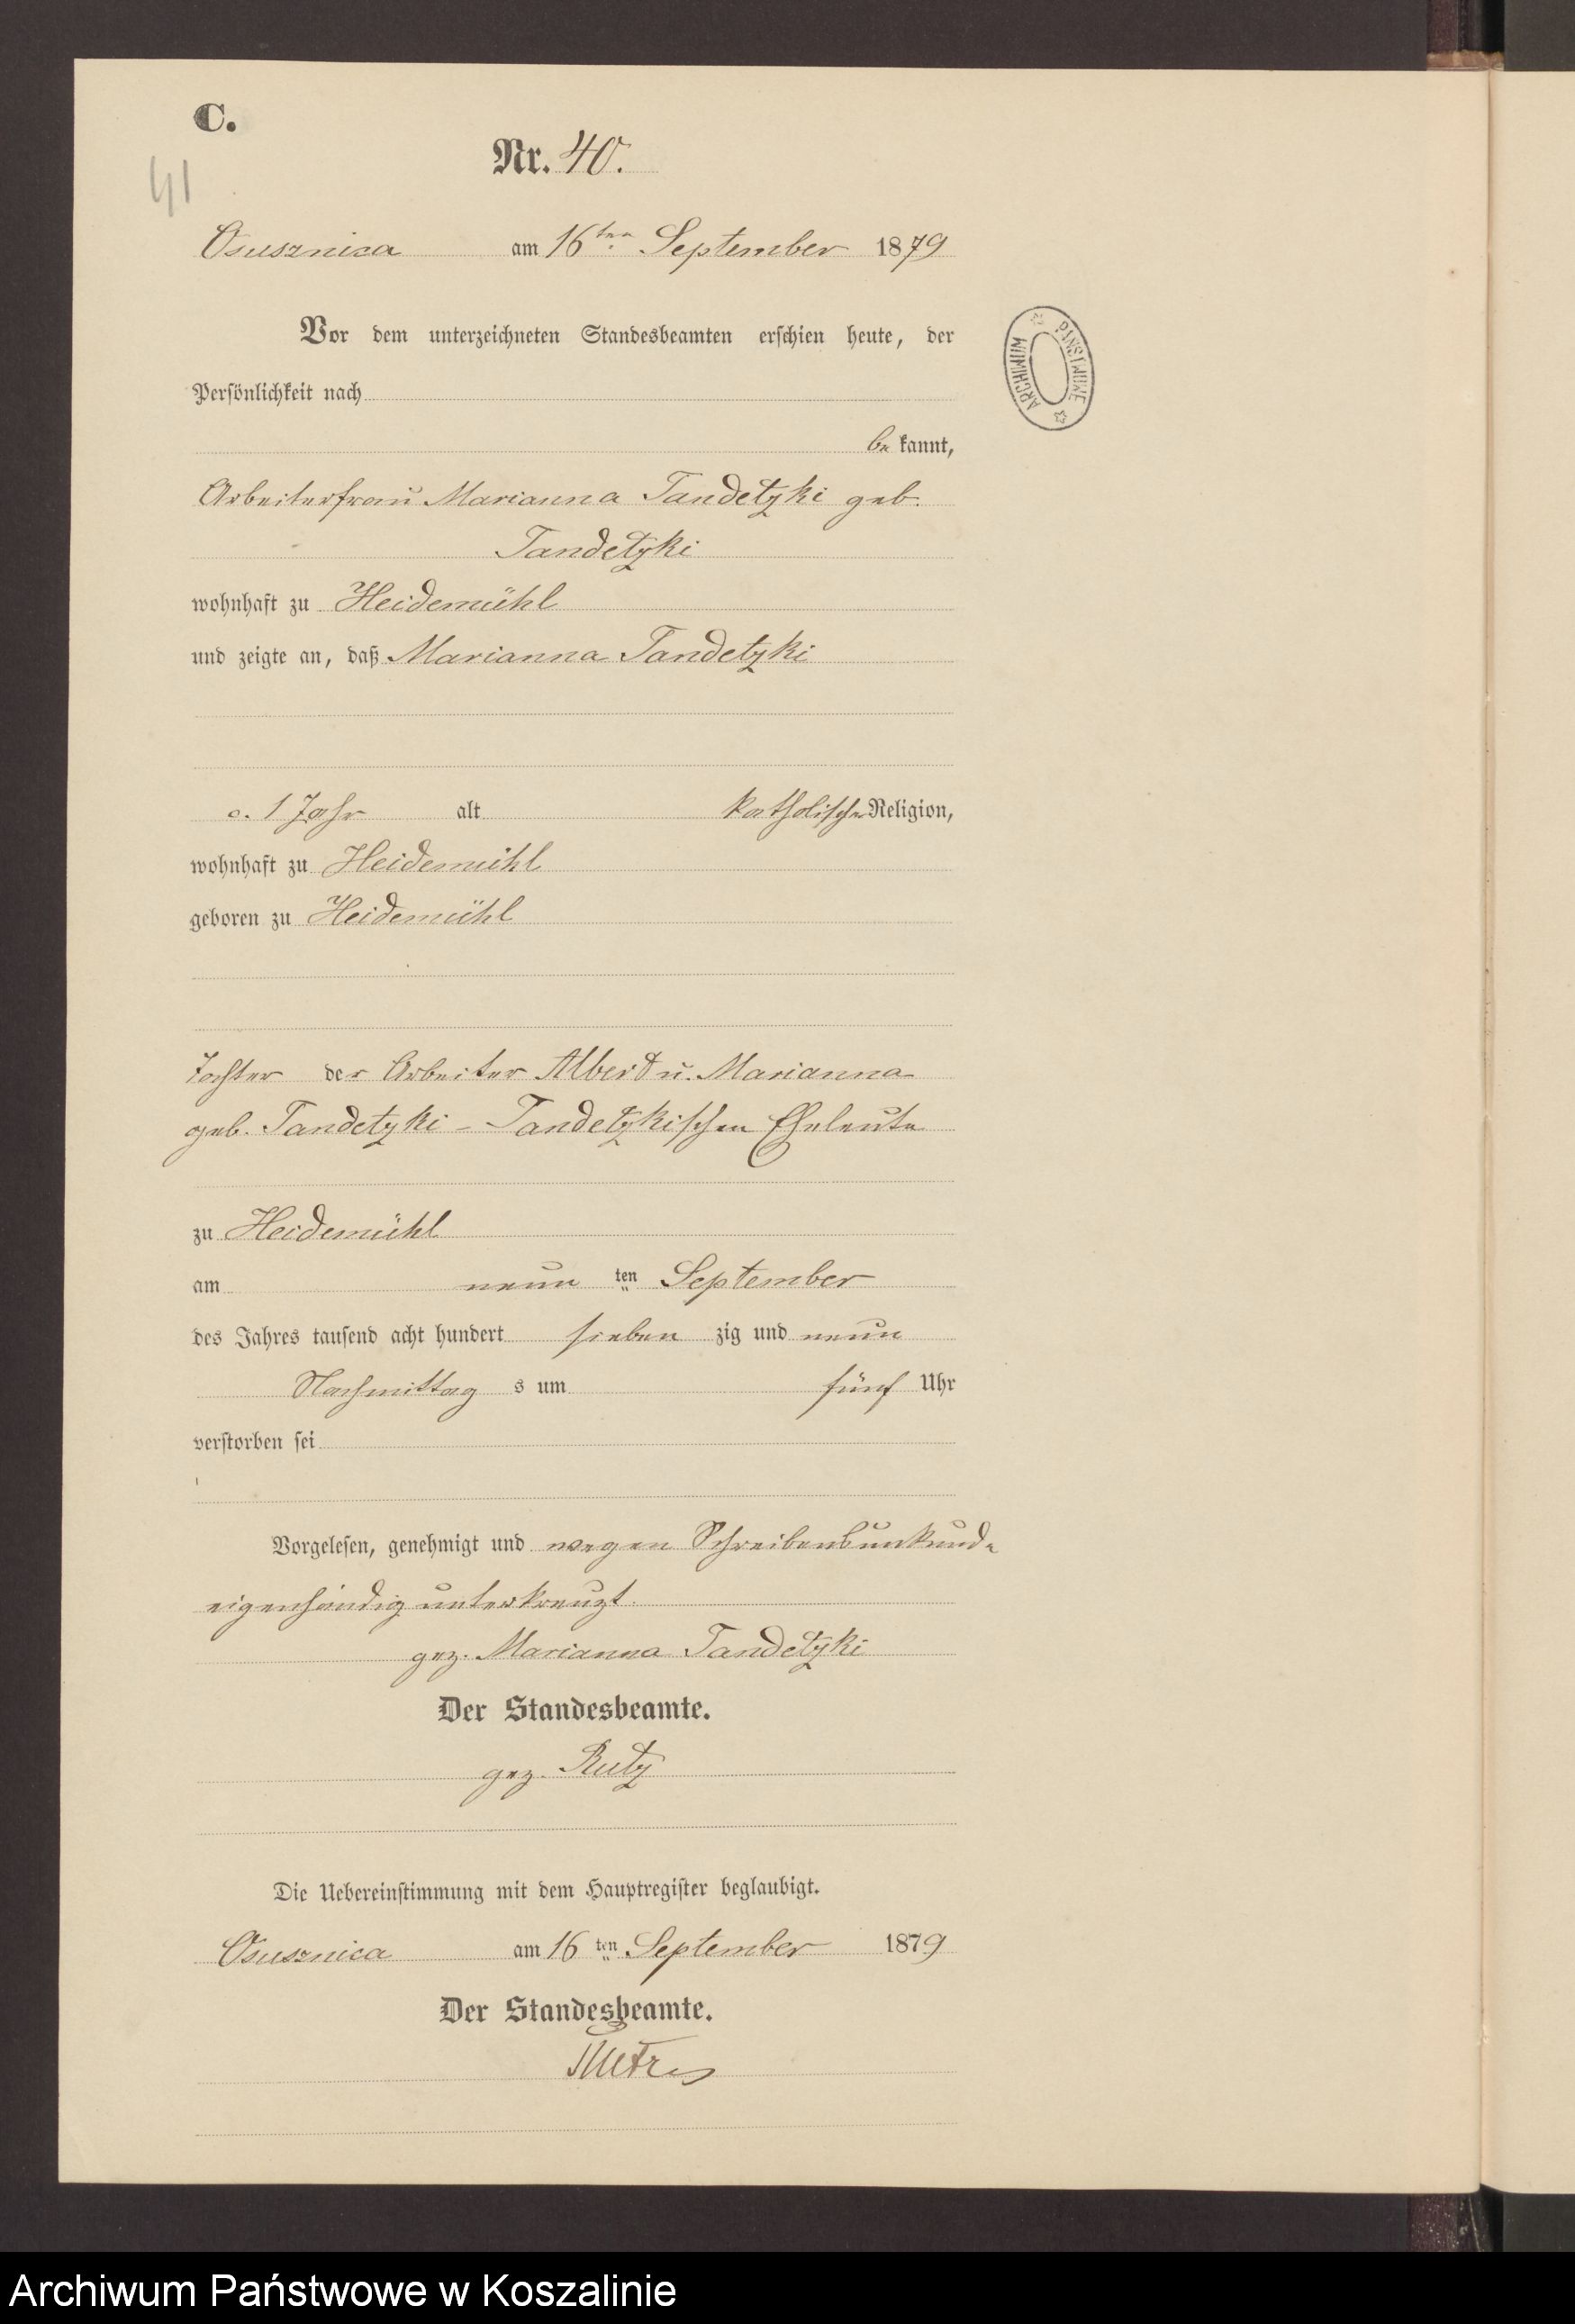 C.
Nr. 40.
41
Osusznica am 16ten September 1879
Vor dem unterzeichneten Standesbeamten erschien heute, der
Persönlichkeit nach
be kannt,
Arbeiterfrau Marianna Tandetzki geb.
Tandetzki
wohnhaft zu Heidemühl
und zeigte an, daß Marianna Tandetzki
c. 1 Jahr alt katholischer Religion,
wohnhaft zu Heidemühl
geboren zu Heidemühl
Tochter der Arbeiter Albert u. Marianna
geb. Tandetzki - Tandetzkischen Eheleute
zu Heidemühl
am neun ten September
des Jahres tausend acht hundert sieben zig und neun
Nachmittag s um fünf Uhr
verstorben sei
Vorgelesen, genehmigt und wegen Schreibensunkunde
eigenhändig unterkreuzt.
gez. Marianna Tandetzki
Der Standesbeamte.
gez. Rutz
Die Uebereinstimmung mit dem Hauptregister beglaubigt.
Osusznica am 16 ten September 1879
Der Standesbeamte.
ARCHIWUM PAŃSTWOWE
Archiwum Państwowe w Koszalinie